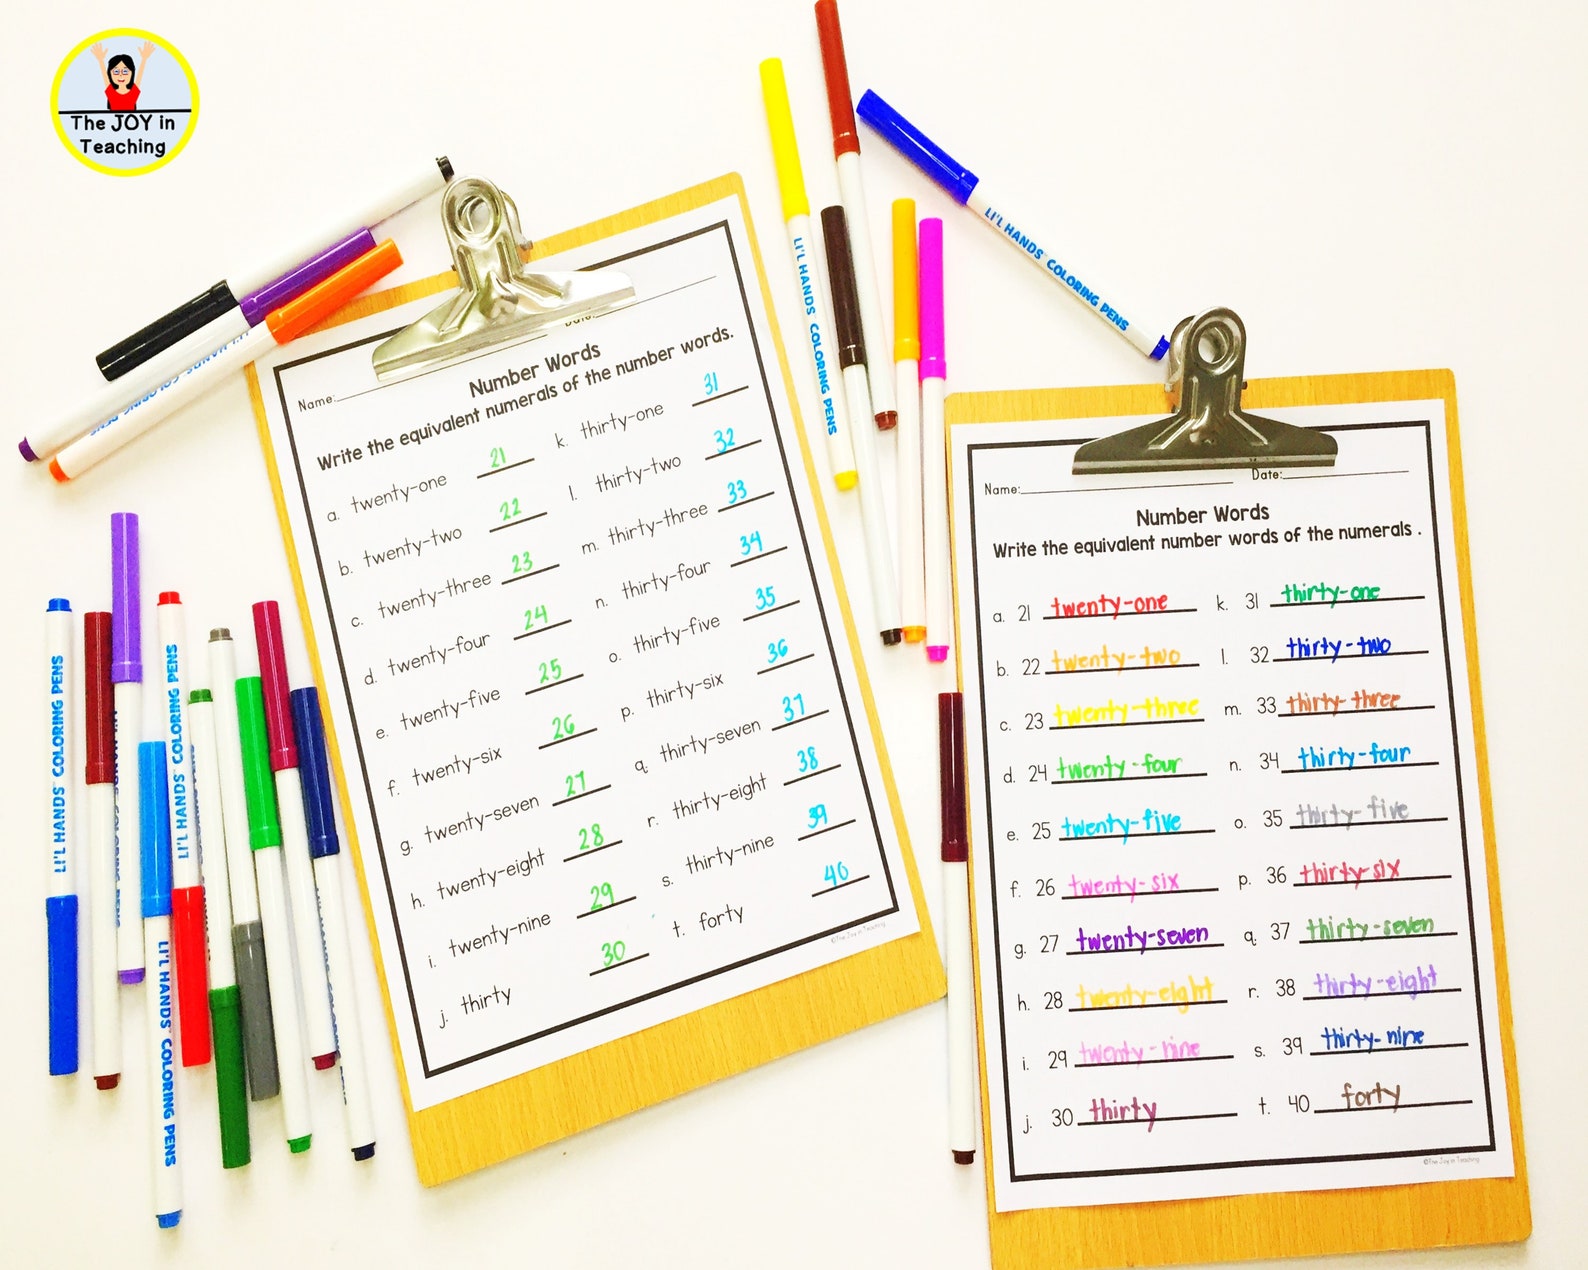 The JOY in
Teaching
LI'L HANDS COLORING PENS
LI'L HANDS COLORING PENS
Name:
Date:
Number Words
Write the equivalent numerals of the number words.
a. twenty-one 21 k. thirty-one 31
b. twenty-two 22 l. thirty-two 32
c. twenty-three 23 m. thirty-three 33
d. twenty-four 24 n. thirty-four 34
e. twenty-five 25 o. thirty-five 35
f. twenty-six 26 p. thirty-six 36
g. twenty-seven 27 q. thirty-seven 37
h. twenty-eight 28 r. thirty-eight 38
i. twenty-nine 29 s. thirty-nine 39
j. thirty 30 t. forty 40
©The Joy in Teaching
Name: Date:
Number Words
Write the equivalent number words of the numerals .
a. 21 twenty-one k. 31 thirty-one
b. 22 twenty-two l. 32 thirty-two
c. 23 twenty-three m. 33 thirty-three
d. 24 twenty-four n. 34 thirty-four
e. 25 twenty-five o. 35 thirty-five
f. 26 twenty-six p. 36 thirty-six
g. 27 twenty-seven q. 37 thirty-seven
h. 28 twenty-eight r. 38 thirty-eight
i. 29 twenty-nine s. 39 thirty-nine
j. 30 thirty t. 40 forty
©The Joy in Teaching
LI'L HANDS COLORING PENS
LI'L HANDS COLORING PENS
LI'L HANDS COLORING PENS